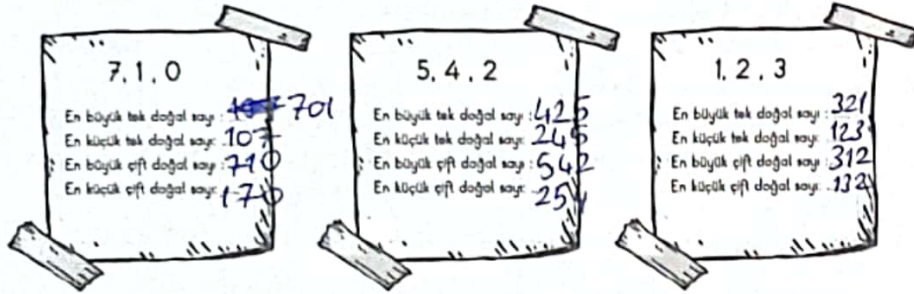 7, 1, 0
En büyük tek doğal sayı : 701
En küçük tek doğal sayı: 107
En büyük çift doğal sayı: 710
En küçük çift doğal sayı: 170
5, 4, 2
En büyük tek doğal sayı : 425
En küçük tek doğal sayı: 245
En büyük çift doğal sayı: 542
En küçük çift doğal sayı: 254
1, 2, 3
En büyük tek doğal sayı : 321
En küçük tek doğal sayı: 123
En büyük çift doğal sayı: 312
En küçük çift doğal sayı: 132